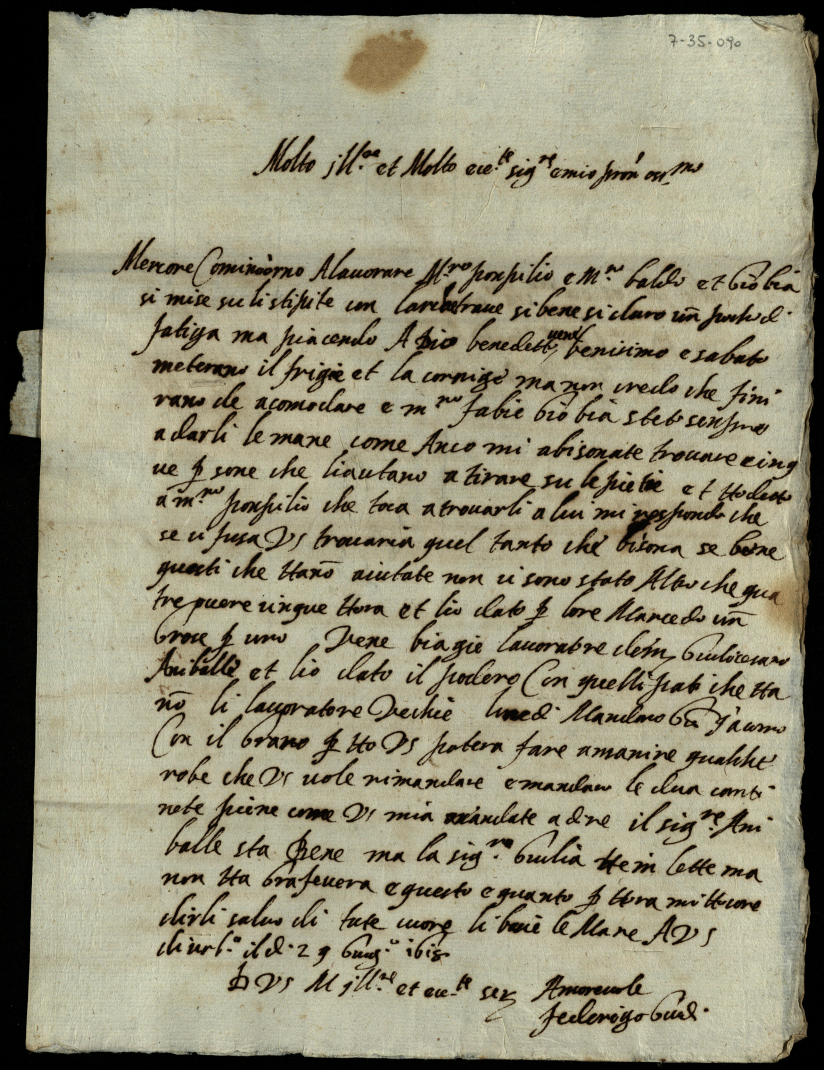 7-35-090
Molto jll.re et Molto ecc.te sig.re e mio pron oss.mo
Mercore Comincorno A lauorare M.ro ponpilio e M.ro baldo et Gio bia
si mise su li stipite con larchitraue si bene si duro un pocho di
fatiga ma piacendo A Dio benedetto venne benisimo e sabato
meterano il frigie et la cornige ma non credo che fini
rano de acomodare e m.ro fabie Gio bia stete senpre
a darli le mane come Anco mi abisonate trouare cinq
ue p sone che li aiutano a tirare su le pietre et tto detto
a m.ro ponpilio che toca a trouarli a lui mi respondo che
se ci fusa VS trouaria quel tanto che bisona se bene
questi che ttano aiutate non ui sono stato Altro che qua
tre puere cinque ttora et lio dato p lore Marcedo un
grose p uno Vene biagie lauoratre del Giulio cesare
Aniballe et lio dato il podero Con quelli pati che tta
no li lauoratore Vechie lunedi Mandaro Gia
Con il grano p tto VS potera fare amanire qualche
robe che VS uole rimandare e mandaro le dua canti
nete piene come VS mia mandate a dire il sig.re Ani
balle sta Bene ma la sig.ra Giulia tte in lette ma
non tta gra feuera e questo e quanto p ttora mi ttocore
dirli saluo di tute cuore li bacie le Mane A VS
di url.o il di 29 Giug.o 1615
D VS M jll.re et ecc.te ser Amoreuole
federigo Guidi